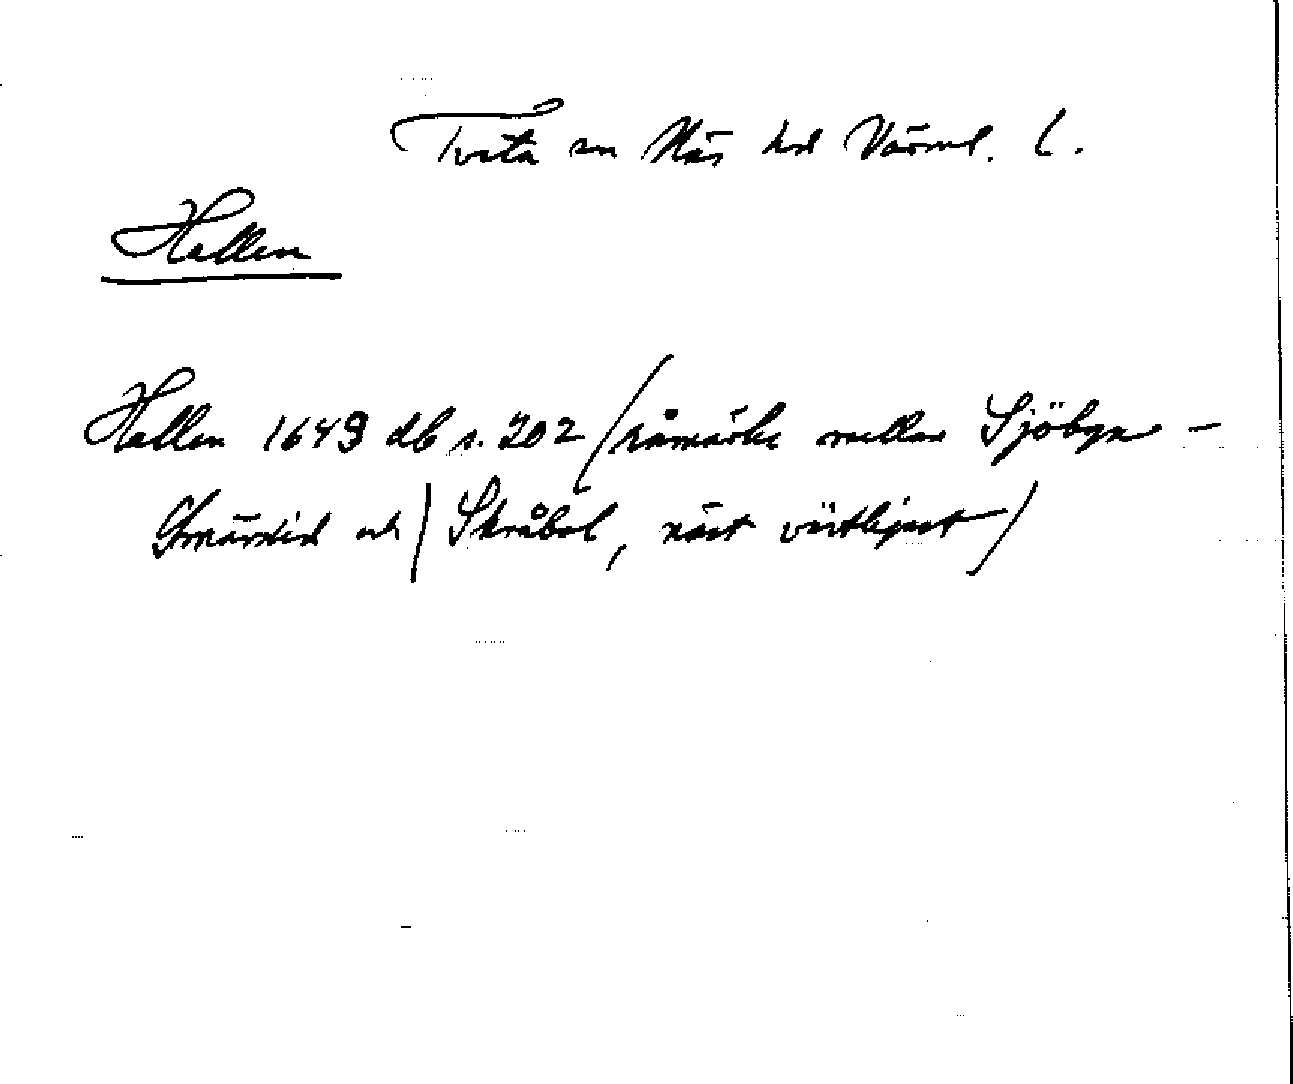 Tveta sn Näs hd Värml. l.
Hallen
Hallen 1649 db s. 202 (råmärke mellan Sjöbyn -
Smårdid och | Skråbol, näst västligast)